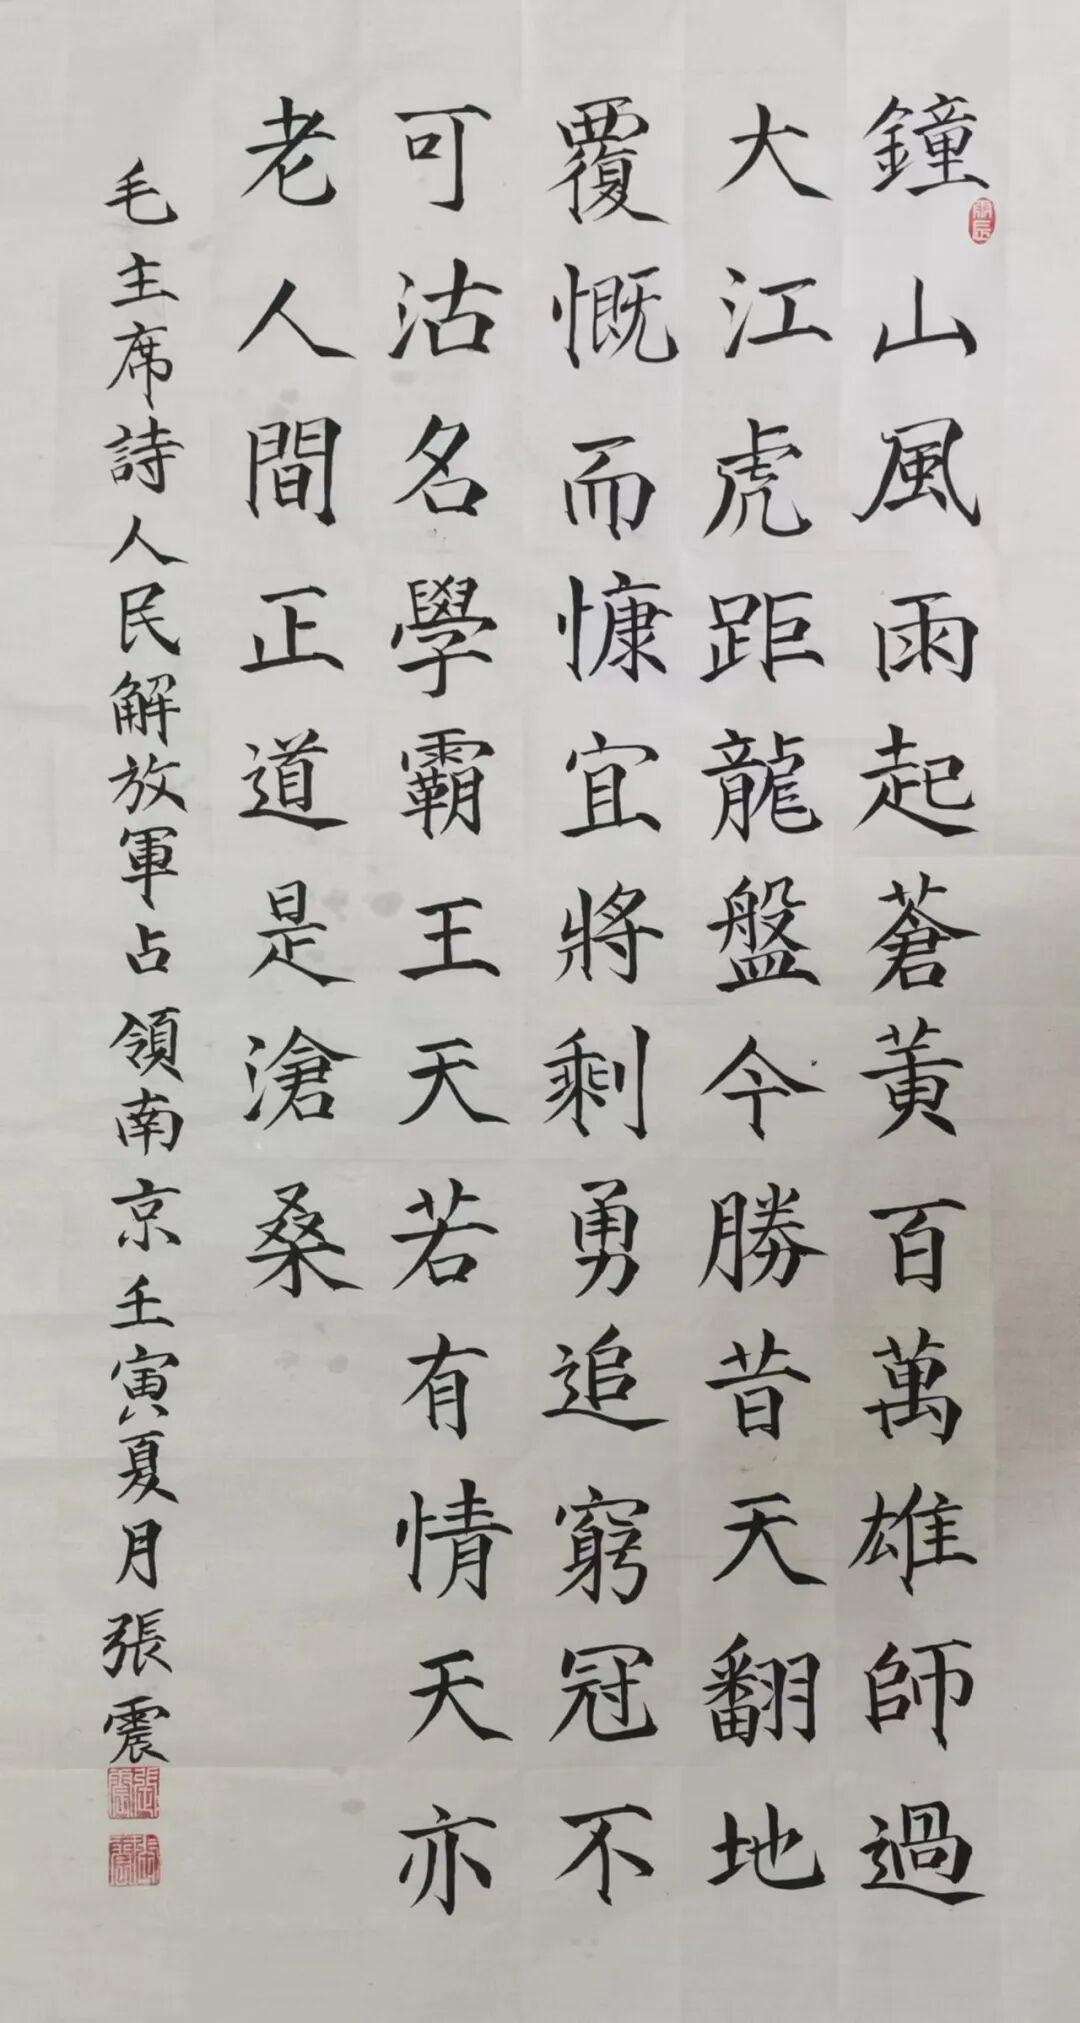 鐘山風雨起蒼黄百萬雄師過
大江虎距龍盤今勝昔天翻地
覆慨而慷宜將剩勇追窮冠不
可沽名學霸王天若有情天亦
老人間正道是滄桑
毛主席詩人民解放軍占領南京壬寅夏月張震
張震
張震